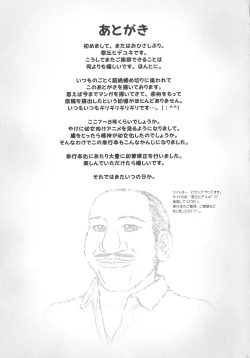 あとがき
初めまして、またはおひさしぶり。
祭丘ヒデユキです。
こうしてまたご挨拶できることは
何よりも嬉しいです。ほんとに。
いつものごとく超絶締め切りに追われて
このあとがきを書いております。
思えば今までマンガを描いてきて、余裕をもって
原稿を提出したという記憶がほとんどありません。
いつもいつもギリギリギリギリです…(；^^)
ここ7〜8年くらいでしょうか。
やけに幼女向けアニメを見るようになりまして、
歳をとったら精神が幼女化したのでしょう。
そんなわけでこの単行本もこんなかんじになりました。
単行本化にあたり大量に加筆修正を行いました。
楽しんでいただけたら嬉しいです。
それではまたいつの日か。
ツイッター、ピクシブ やってます。
サイト内を "祭丘ヒデユキ" で
検索してください。